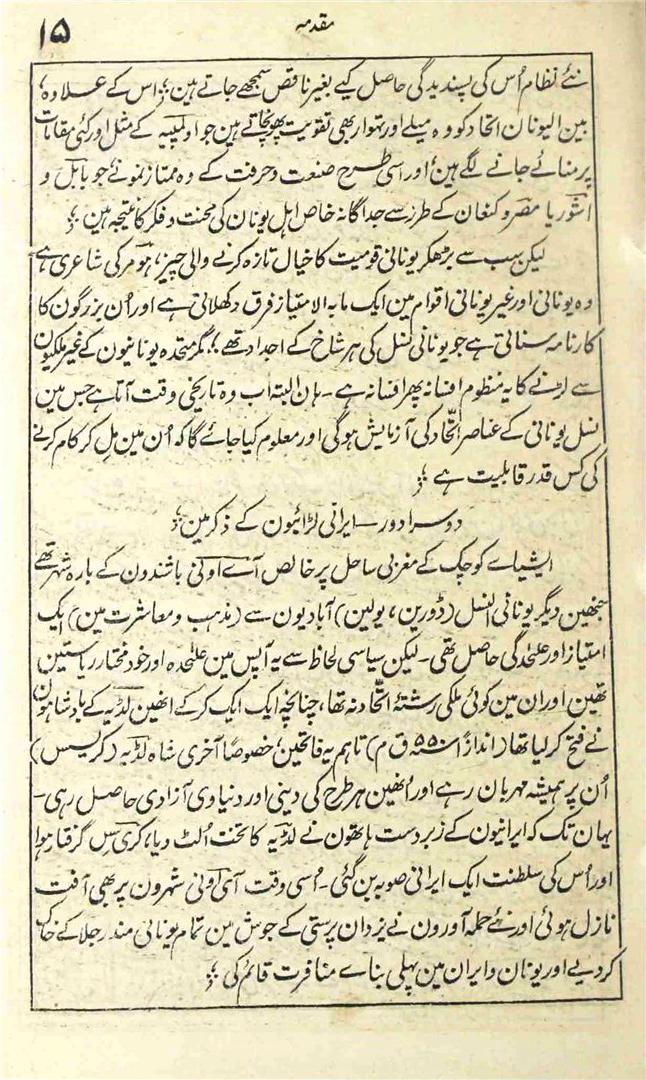 مقدمہ
۱۵
نئے نظام اُس کی پسندیدگی حاصل کیے بغیر ناقص سمجھے جاتے ہین؛ اس کے علاوہ،
بین الیونان اتحاد کو وہ میلے اور تہوار بھی تقویت پھونچاتے ہین جو اولمپیہ کے مثل اور کئی مقامات
پر منائے جانے لگے ہین؛ اور اسی طرح صنعت وحرفت کے وہ ممتاز نمونے جو بابل و
اشوریا مصر و کنعان کے طرز سے جداگانہ خاص اہل یونان کی محنت و فکر کا نتیجہ ہین؛
لیکن سب سے بڑھکر یونانی قومیت کا خیال تازہ کرنے والی چیز، ہومر کی شاعری ہے
وہ یونانی اور غیر یونانی اقوام مین ایک مابہ الامتیاز فرق دکھلاتی ہے اور اُن بزرگون کا
کارنامہ سناتی ہے جو یونانی نسل کی ہر شاخ کے اجداد تھے؛ مگر متحدہ یونانیون کے غیر ملکیون
سے لڑنے کا یہ منظوم افسانہ پھر افسانہ ہے۔ ہان البتہ اب وہ تاریخی وقت آتا ہے جس مین
نسل یونانی کے عناصر اتّحاد کی آزمایش ہوگی اور معلوم کیا جائے گا کہ اُن مین مِل کر کام کرنے
کی کس قدر قابلیت ہے؛
دوسرا دور – ایرانی لڑائیون کے ذکر مین؛
ایشیاے کوچک کے مغربی ساحل پر خالص آے اونی باشندون کے بارہ شہر تھے
جنھین دیگر یونانی النسل (ڈورین، یولین) آبادیون سے (مذہب و معاشرت مین) یک
امتیاز اور علحدگی حاصل تھی۔ لیکن سیاسی لحاظ سے یہ آپس مین علحدہ اور خود مختار ریاستین
تھین اور ان مین کوئی ملکی رشتۂ اتّحاد نہ تھا، چنانچہ ایک ایک کرکے انھین لڈیہ کے بادشاہون
نے فتح کر لیا تھا (اندازاً ۵۵۰ ق م) تاہم یہ فاتحین؛ خصوصاً آخری شاہ لڈیہ (کریسس)
اُن پر ہمیشہ مہربان رہے اور اُنھین ہر طرح کی دینی اور دنیاوی آزادی حاصل رہی۔
یہان تک کہ ایرانیون کے زبردست ہاتھون نے لڈیہ کا تخت اُلٹ دیا، کری سِس گرفتار ہوا
اور اُس کی سلطنت ایک ایرانی صوبہ بن گئی۔ اُسی وقت آئی اونی شہرون پر بھی آفت
نازل ہوئی اور نئے حملہ آورون نے یزدان پرستی کے جوش مین تمام یونانی مندر جلا کے خاک
کر دیے اور یونان و ایران مین پہلی بناے منافرت قائم کی؛